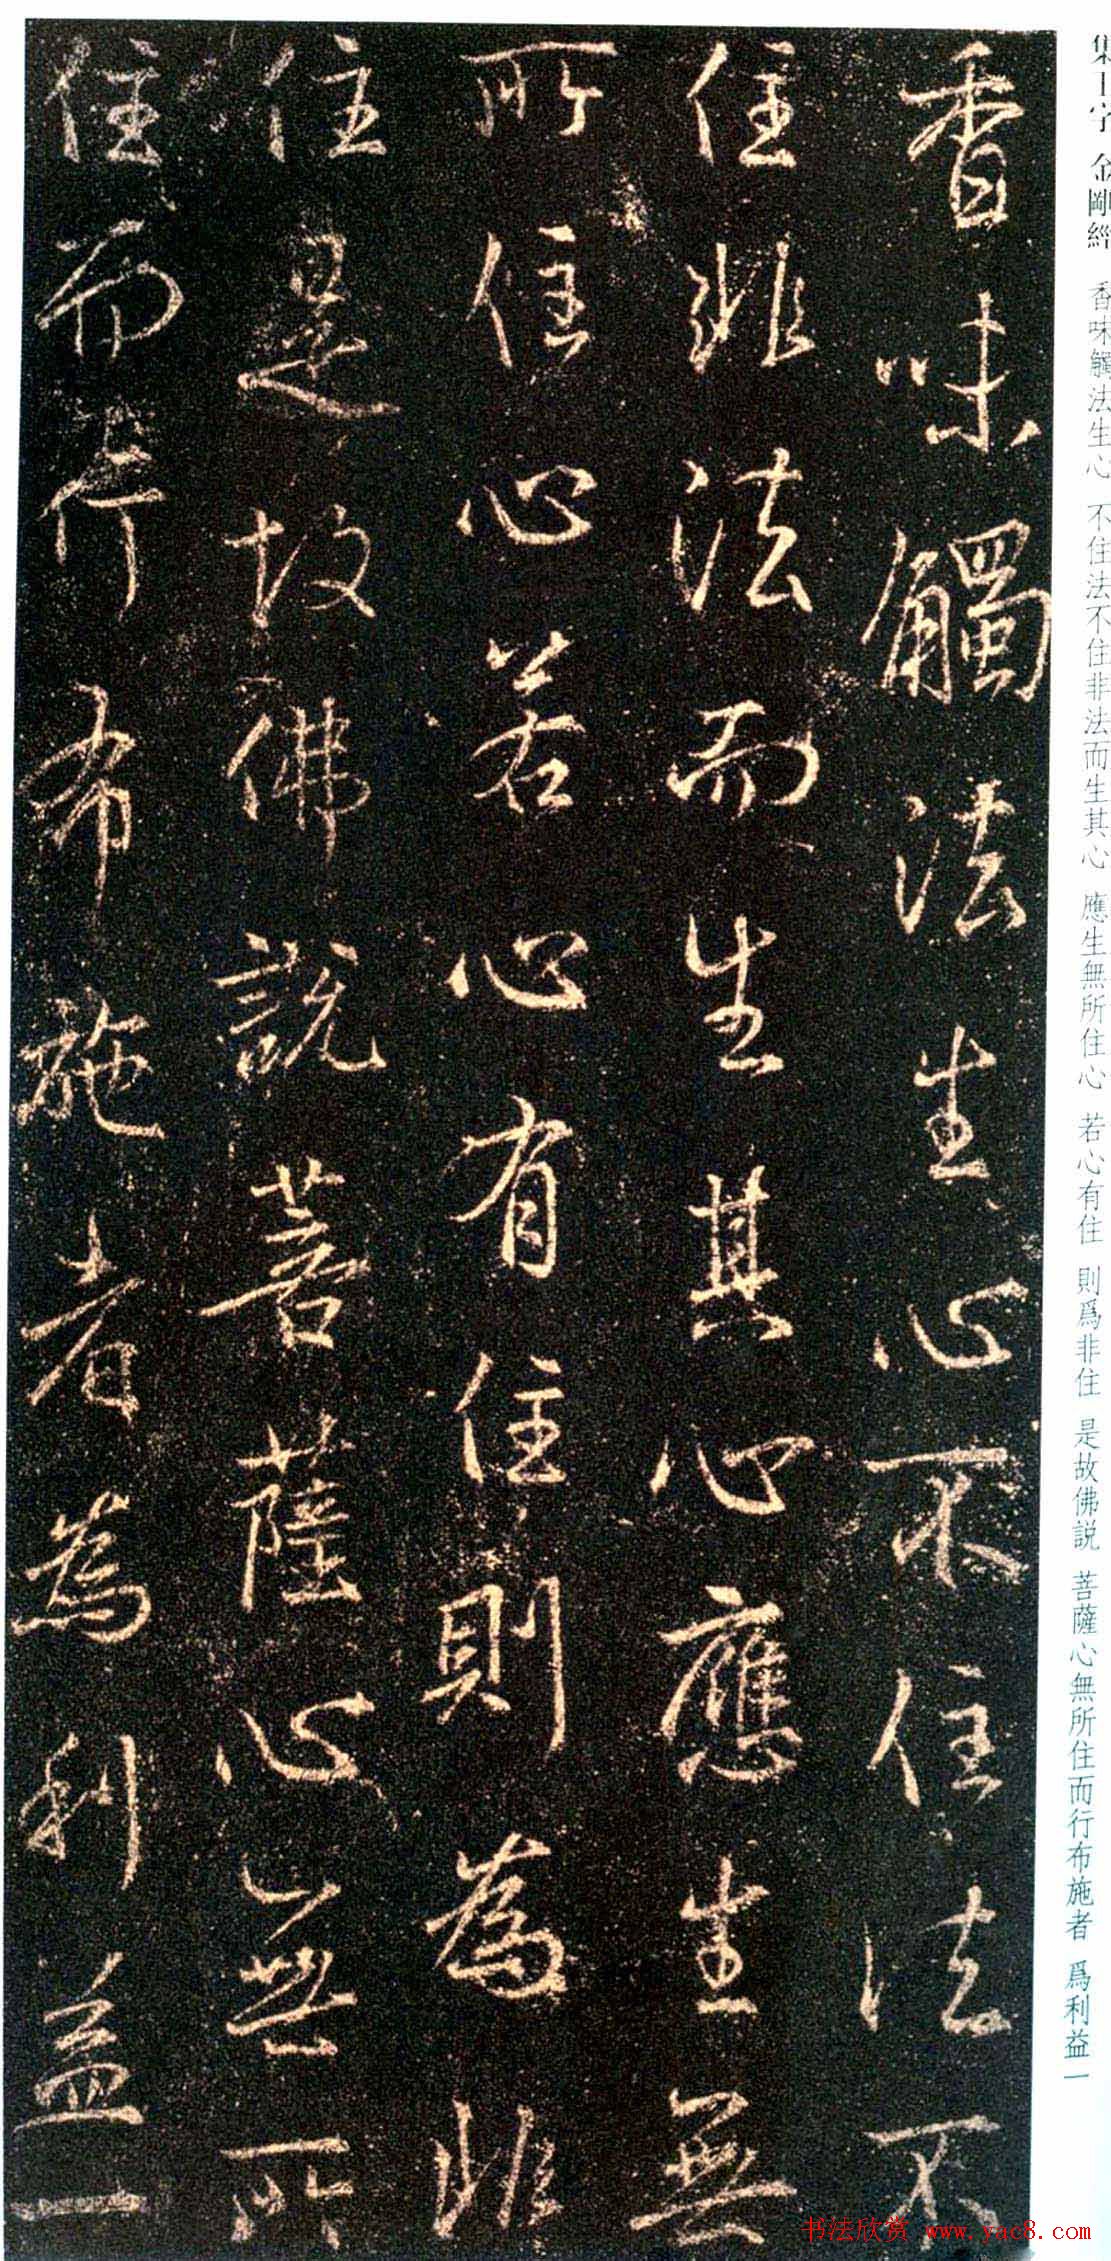 集王字 金剛經 香味觸法生心 不住法不住非法而生其心 應生無所住心 若心有住 則爲非住 是故佛説 菩薩心無所住而行布施者 爲利益一
香味觸法生心不住法不
住非法而生其心應生無
所住心若心有住則為非
住是故佛說菩薩心無所
住而行布施者為利益一
书法欣赏 www.yac8.com